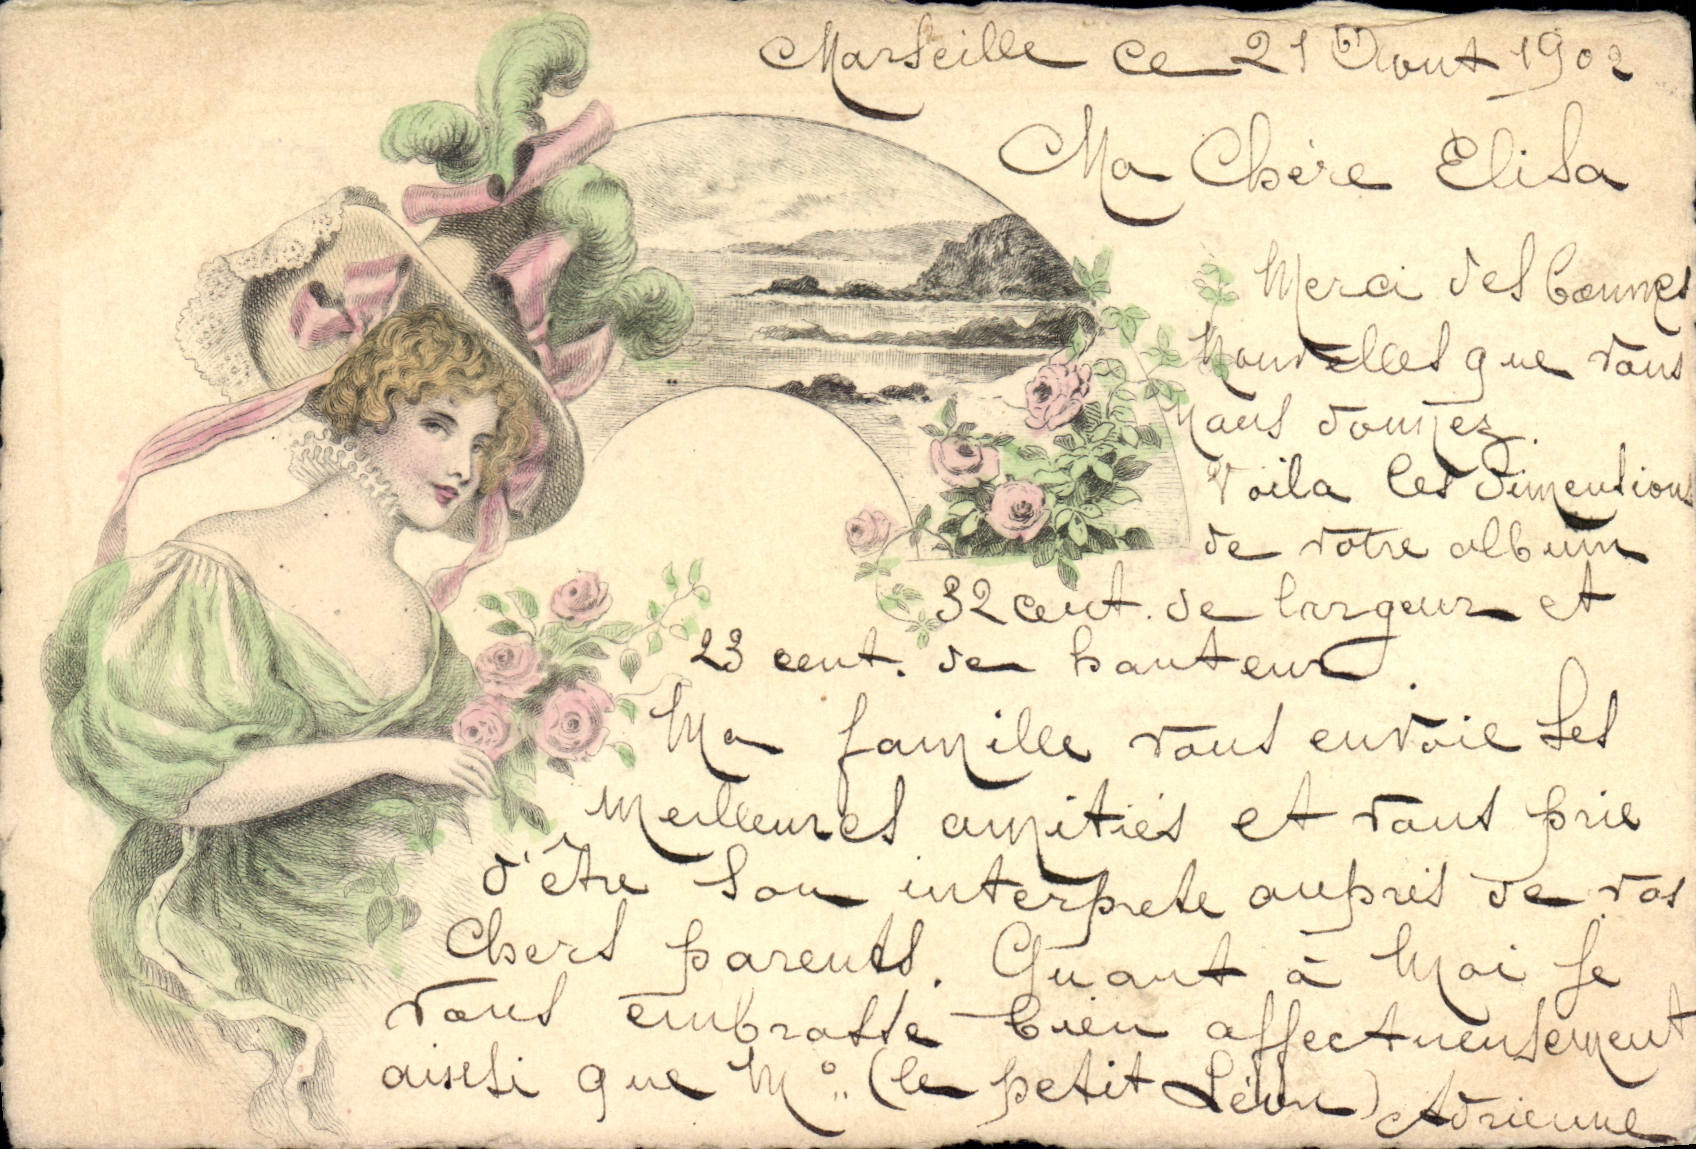 Marseille ce 21 Aout 1902
Ma Chère Elisa
Merci des bonnes
nouvelles que vous
nous donnez.
Voila les dimensions
de votre album
32 cent. de largeur et
23 cent. de hauteur.
Ma famille vous envoie ses
meilleures amitiés et vous prie
d'être son interprete auprès de vos
chers parents. Quant à moi je
vous embrasse bien affectueusement
ainsi que M° (le petit Léon) Adrienne